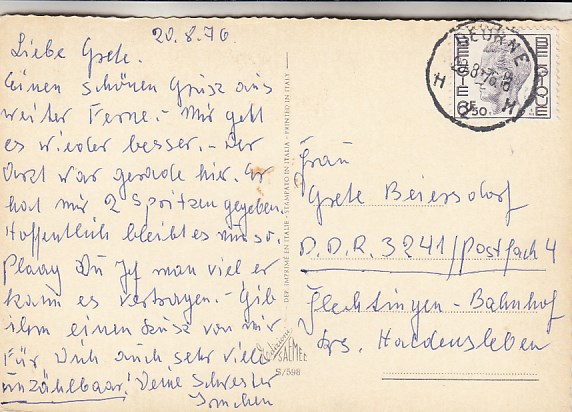 20.8.76
Liebe Grete.
Einen schönen Gruss aus
weiter Ferne.- Mir geht
es wieder besser.- Der
Arzt war gerade hier. Er
hat mir 2 Spritzen gegeben.
Hoffentlich bleibt es nun so.
Plaag Du Jef man viel er
kann es vertragen.- Gib
ihm einen Kuss von mir
Für Dich auch sehr viele
unzählbaar! Deine Schwester
Irmchen
DEP. IMPRIMÉ EN ITALIE - STAMPATO IN ITALIA - PRINTED IN ITALY
SALMET
S/598
DEURNE
-8-76
H H
BELGIË BELGIQUE
6F50
Frau
Grete Beiersdorf
D.D.R. 3241/Postfach 4
Flechtingen-Bahnhof
Krs. Haldensleben